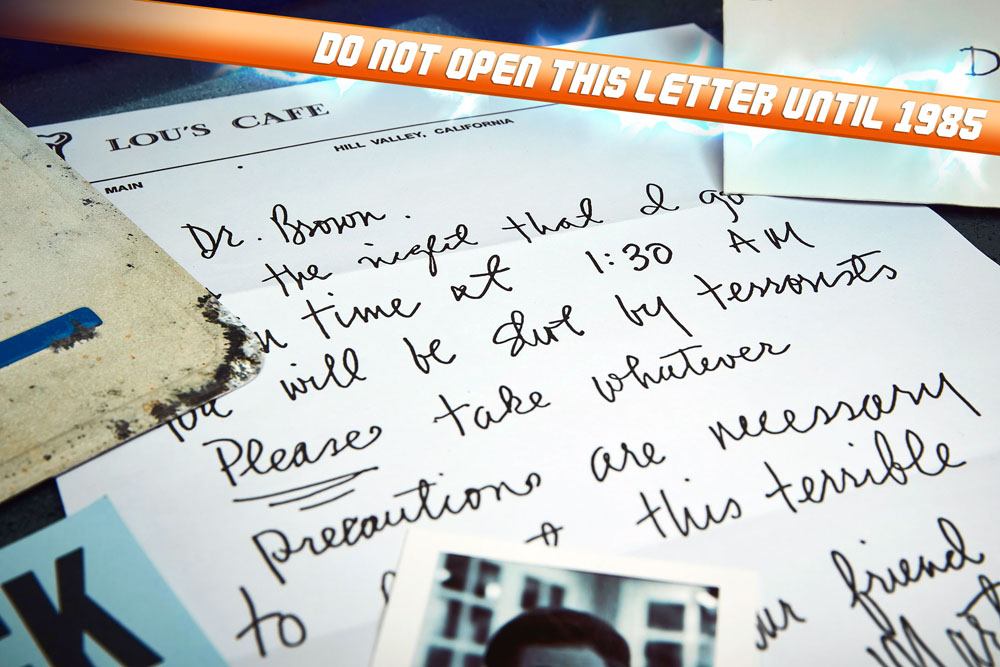 DO NOT OPEN THIS LETTER UNTIL 1985
D
LOU'S CAFE
HILL VALLEY, CALIFORNIA
MAIN
Dr. Brown.
the night that I go
n time at 1:30 AM
You will be shot by terrorists
Please take whatever
precautions are necessary
to this terrible
ur friend
Mart
K